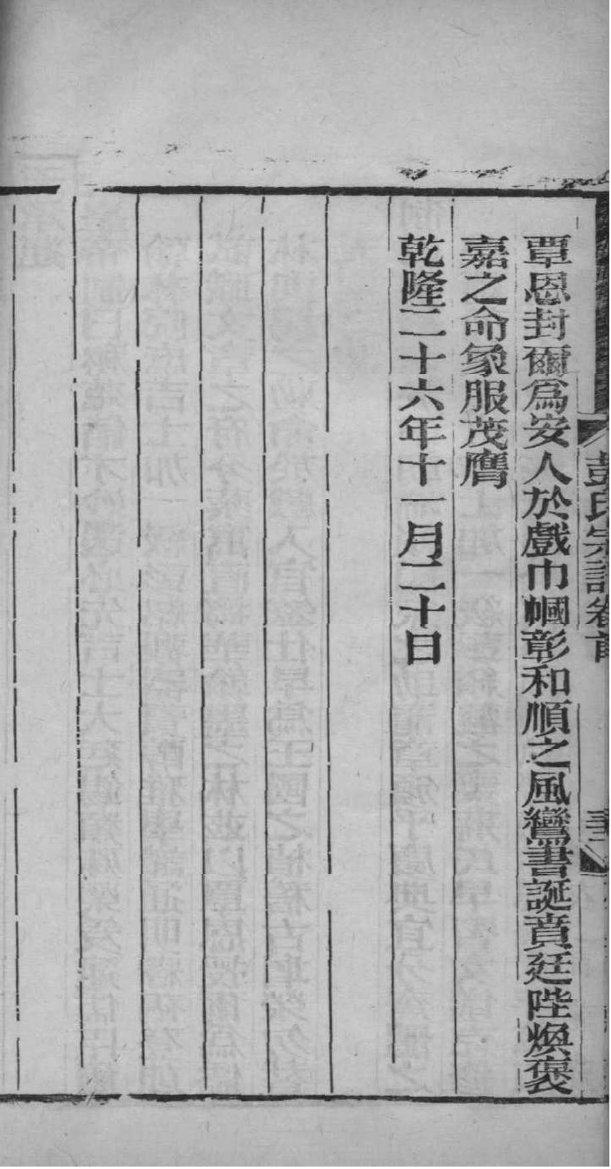 彭氏宗譜卷首
覃恩封爾爲安人於戲巾幗彰和順之風鸞書誕賁廷陛煥褒
嘉之命象服茂膺
乾隆二十六年十一月二十日